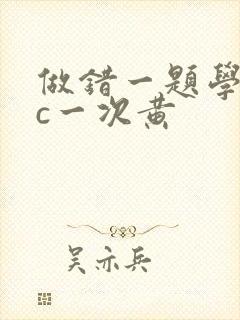 做錯一題學
c一次黄
吴亦兵